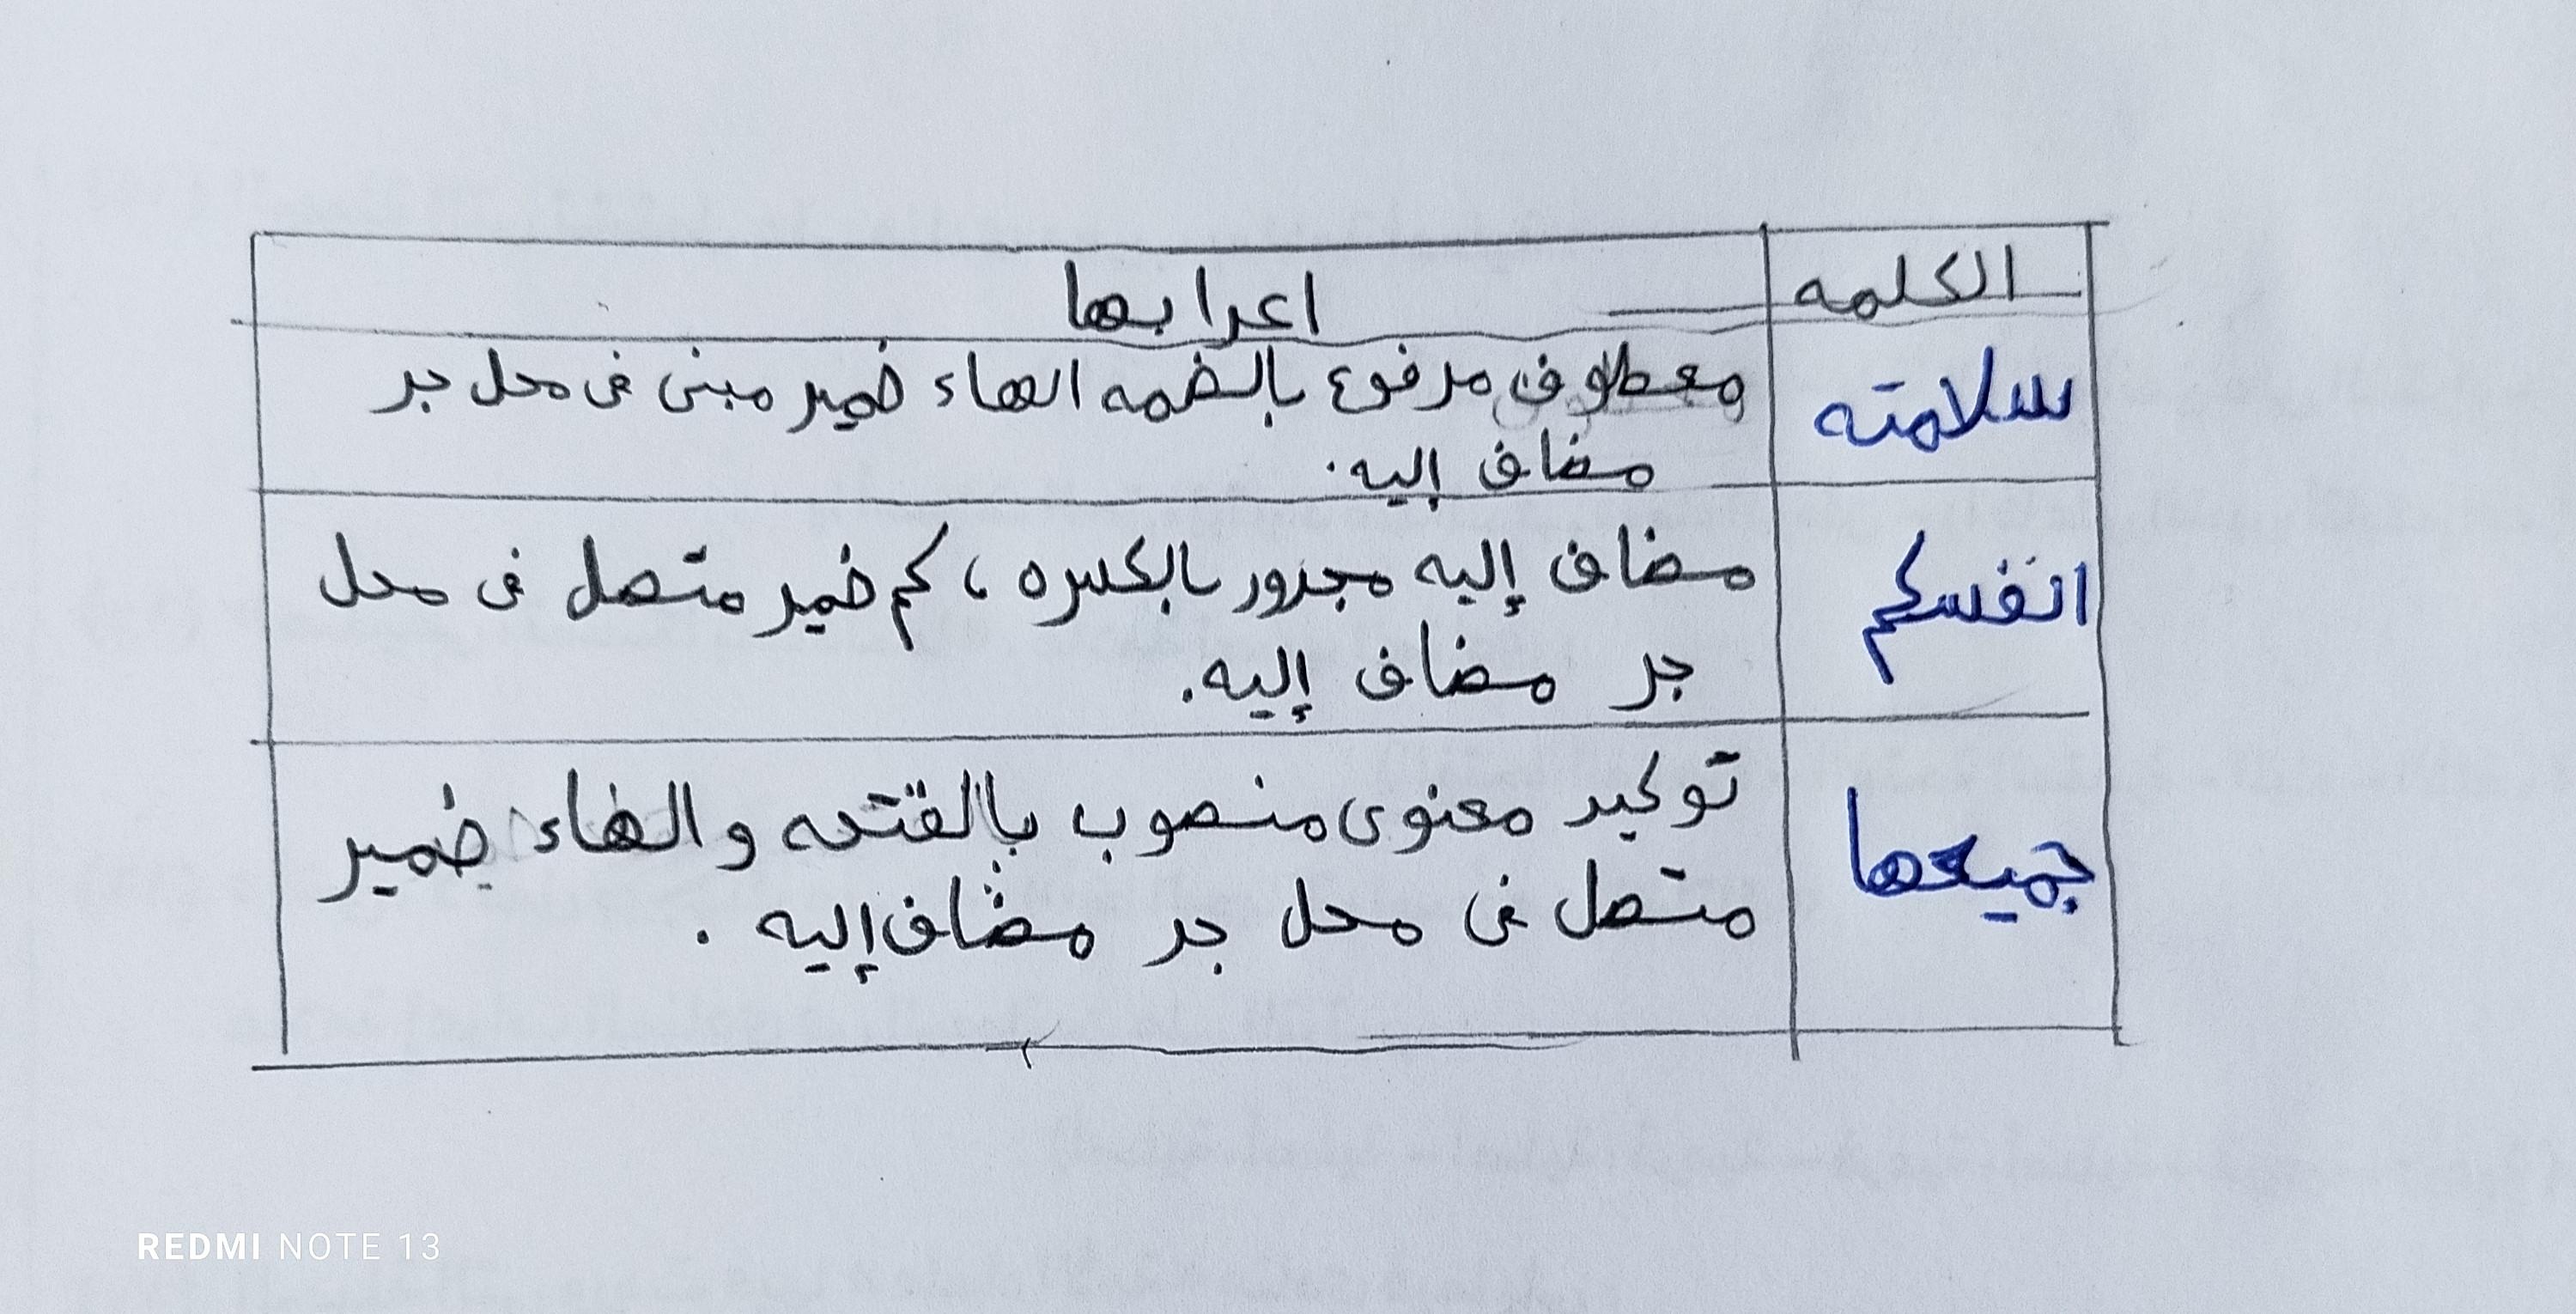 الكلمه
اعرابها
سلامته
معطوف مرفوع بالضمه الهاء ضمير مبنى فى محل جر
مضاف إليه.
انفسكم
مضاف إليه مجرور بالكسره ، كم ضمير متصل فى محل
جر مضاف إليه.
جميعها
توكيد معنوى منصوب بالفتحه والهاء ضمير
متصل فى محل جر مضاف إليه .
REDMI NOTE 13